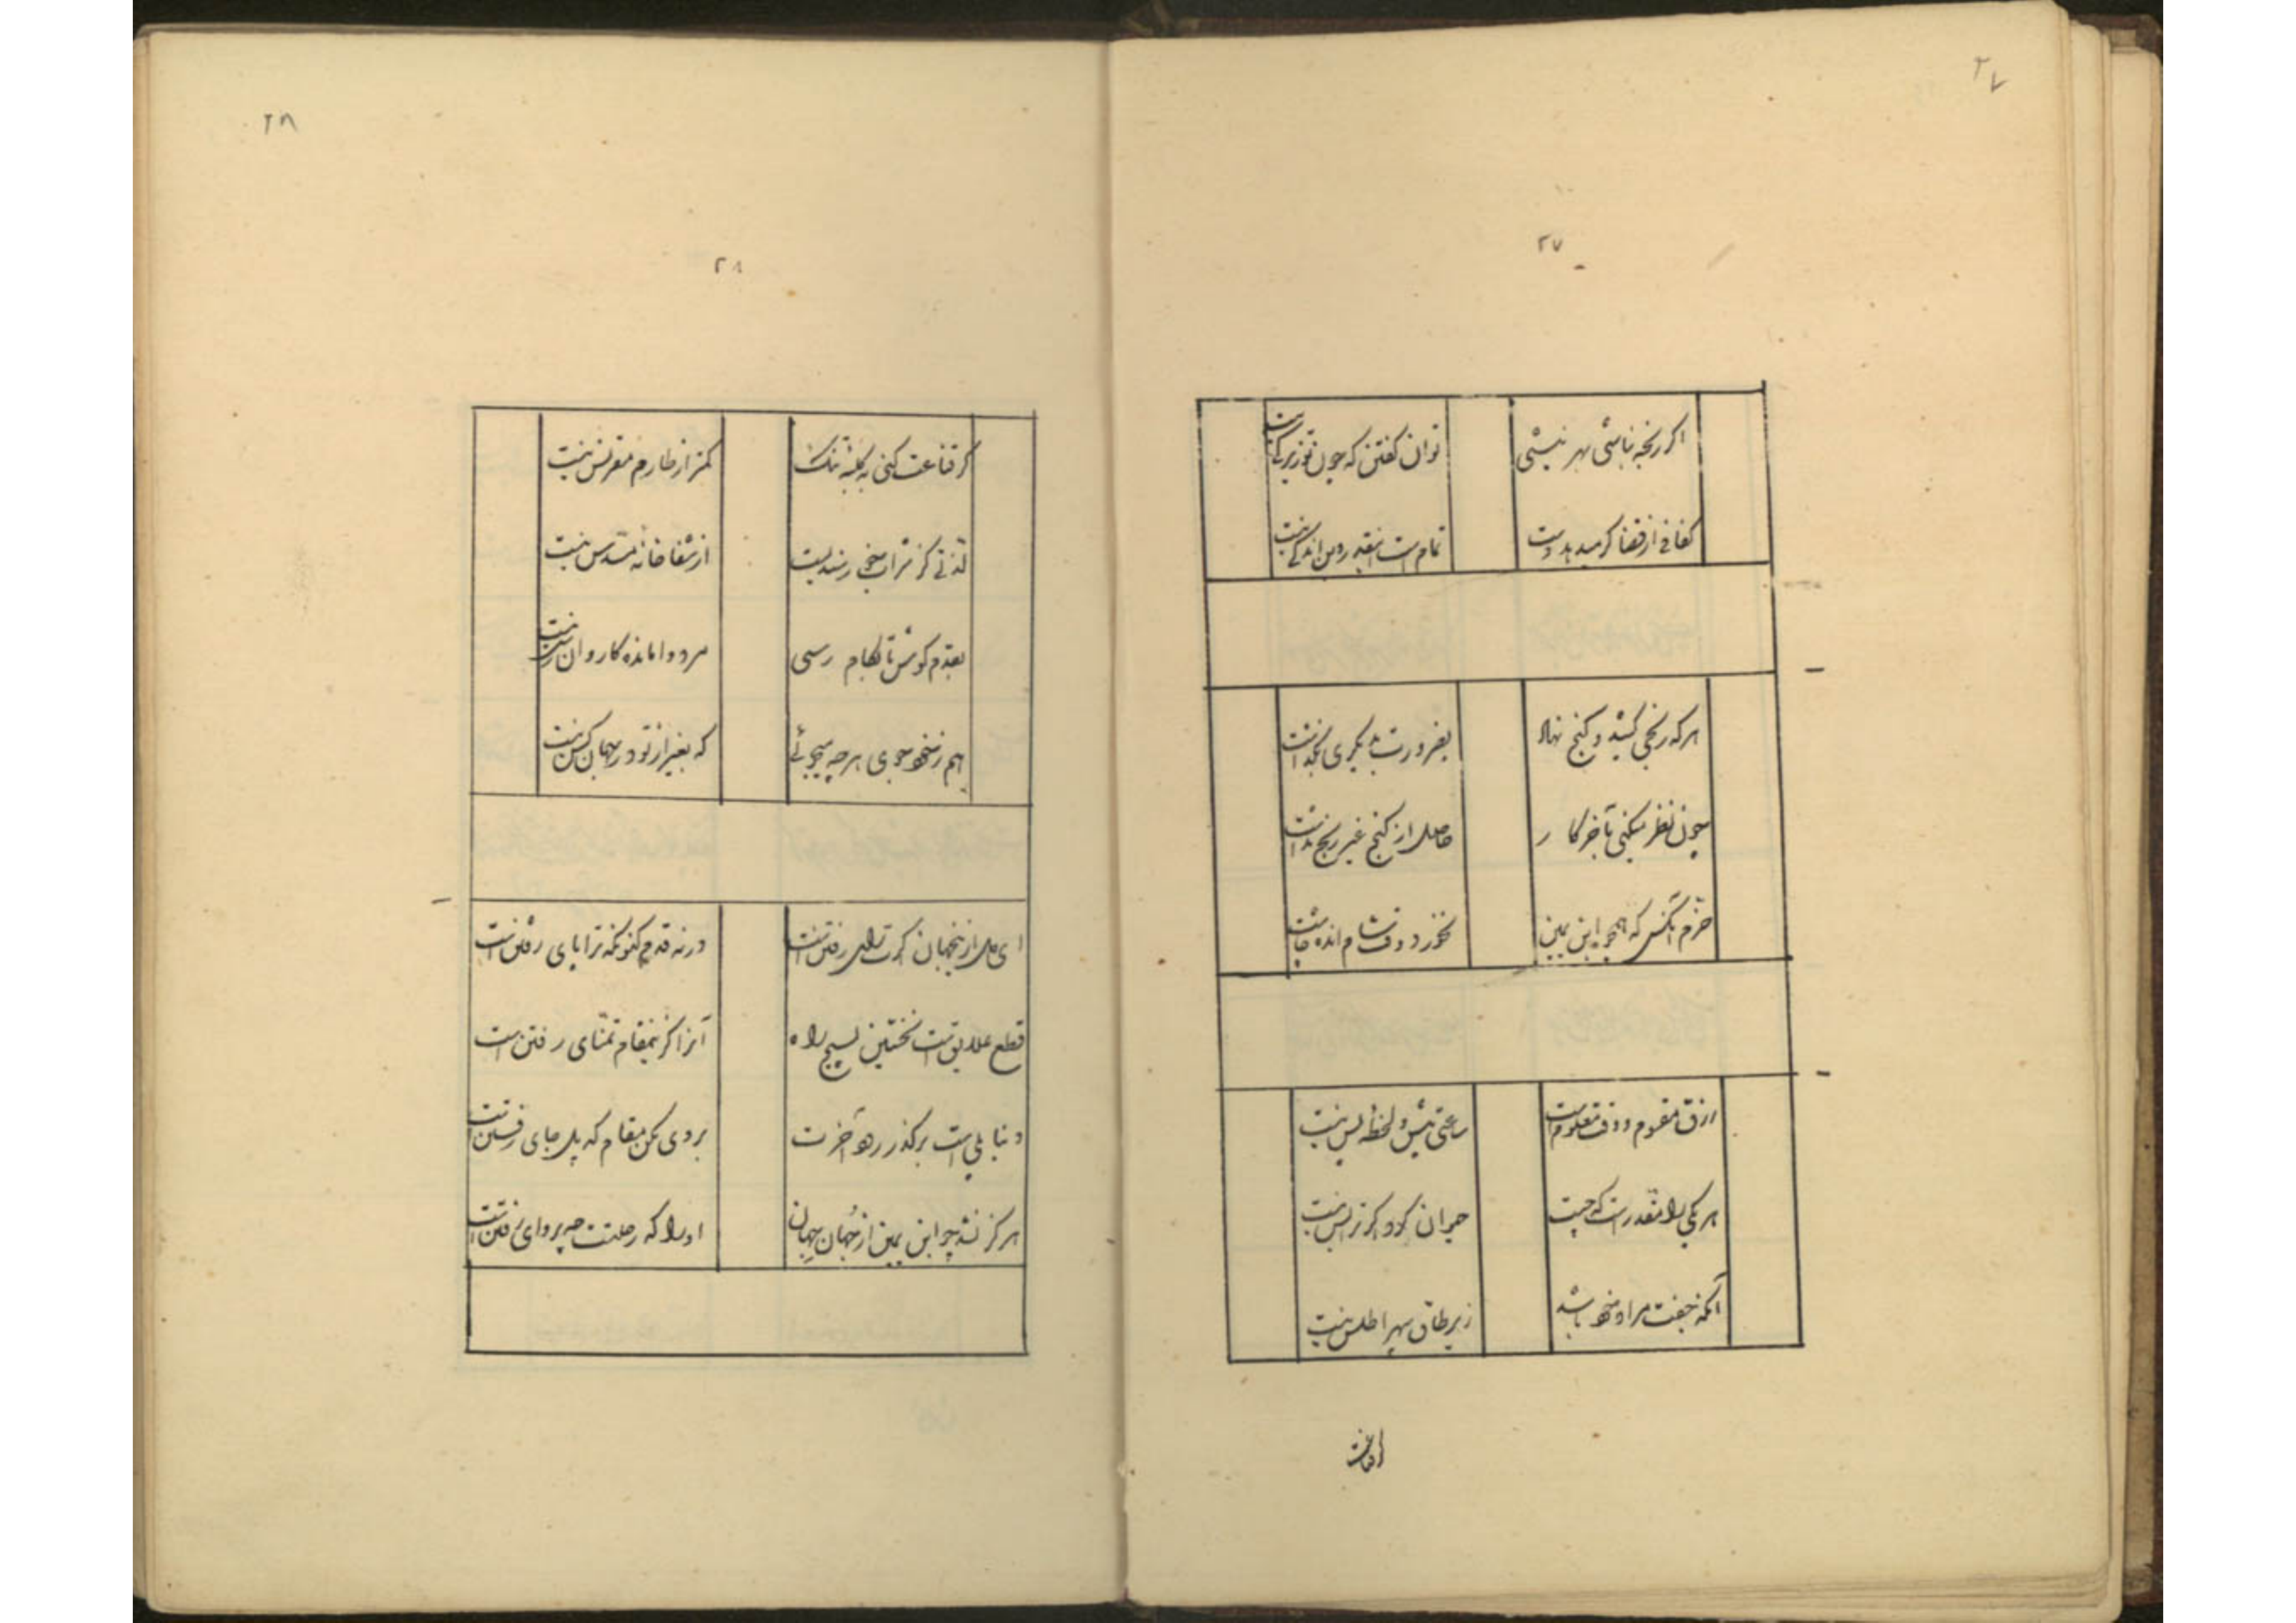 ۲۷
۲۷
اگر رنجه نباشی بهر نیستی
توان گفتن که چون تو زیرکی نیست
کفافی از قضا گر میدهد دست
تمام است اینقدر وین اندکی نیست
هر که رنجی کشید و گنج نهاد
بضرورت بدیگری بگذاشت
چون نظر میکنی بآخر کار
حاصل از گنج غیر رنج نداشت
خرّم آنکس که همچو ابن یمین
بخورد وقت شام انده چاشت
رزق مقسوم و وقت معلوم است
ساعتی پیش و لحظهٔ پس نیست
هر یکی را مقدر است که چیست
حیوان کود و کرتراپس نیست
آنکه جفت مراد خود باشد
زیر طاق سپهر اطلس نیست
گر قناعت کنی به کلبهٔ تنگ
کمتر از طارم مقرنس نیست
لذتی کز شراب رسد
از شفاخانهٔ مسدس نیست
بقدم کوش تا بکام رسی
مرد وامانده کاروان رس نیست
هم ز خود جوی هر چه میجوئی
که بغیر از تو در جهان کس نیست
ای دل از ینجهان گرت رای رفتن است
در نه قدم کنونکه ترا پای رفتن است
قطع علایق است نخستین بسیج راه
آنرا کزینمقام تمنّای رفتن است
دنیا پلی است برگذر رهو آخرت
بر وی مکن مقام که پل جای رفتن است
هرگز نشد چو ابن یمین از جهان جهان
او را که رحلتت چه پروای رفتن است
۲۸
۲۸